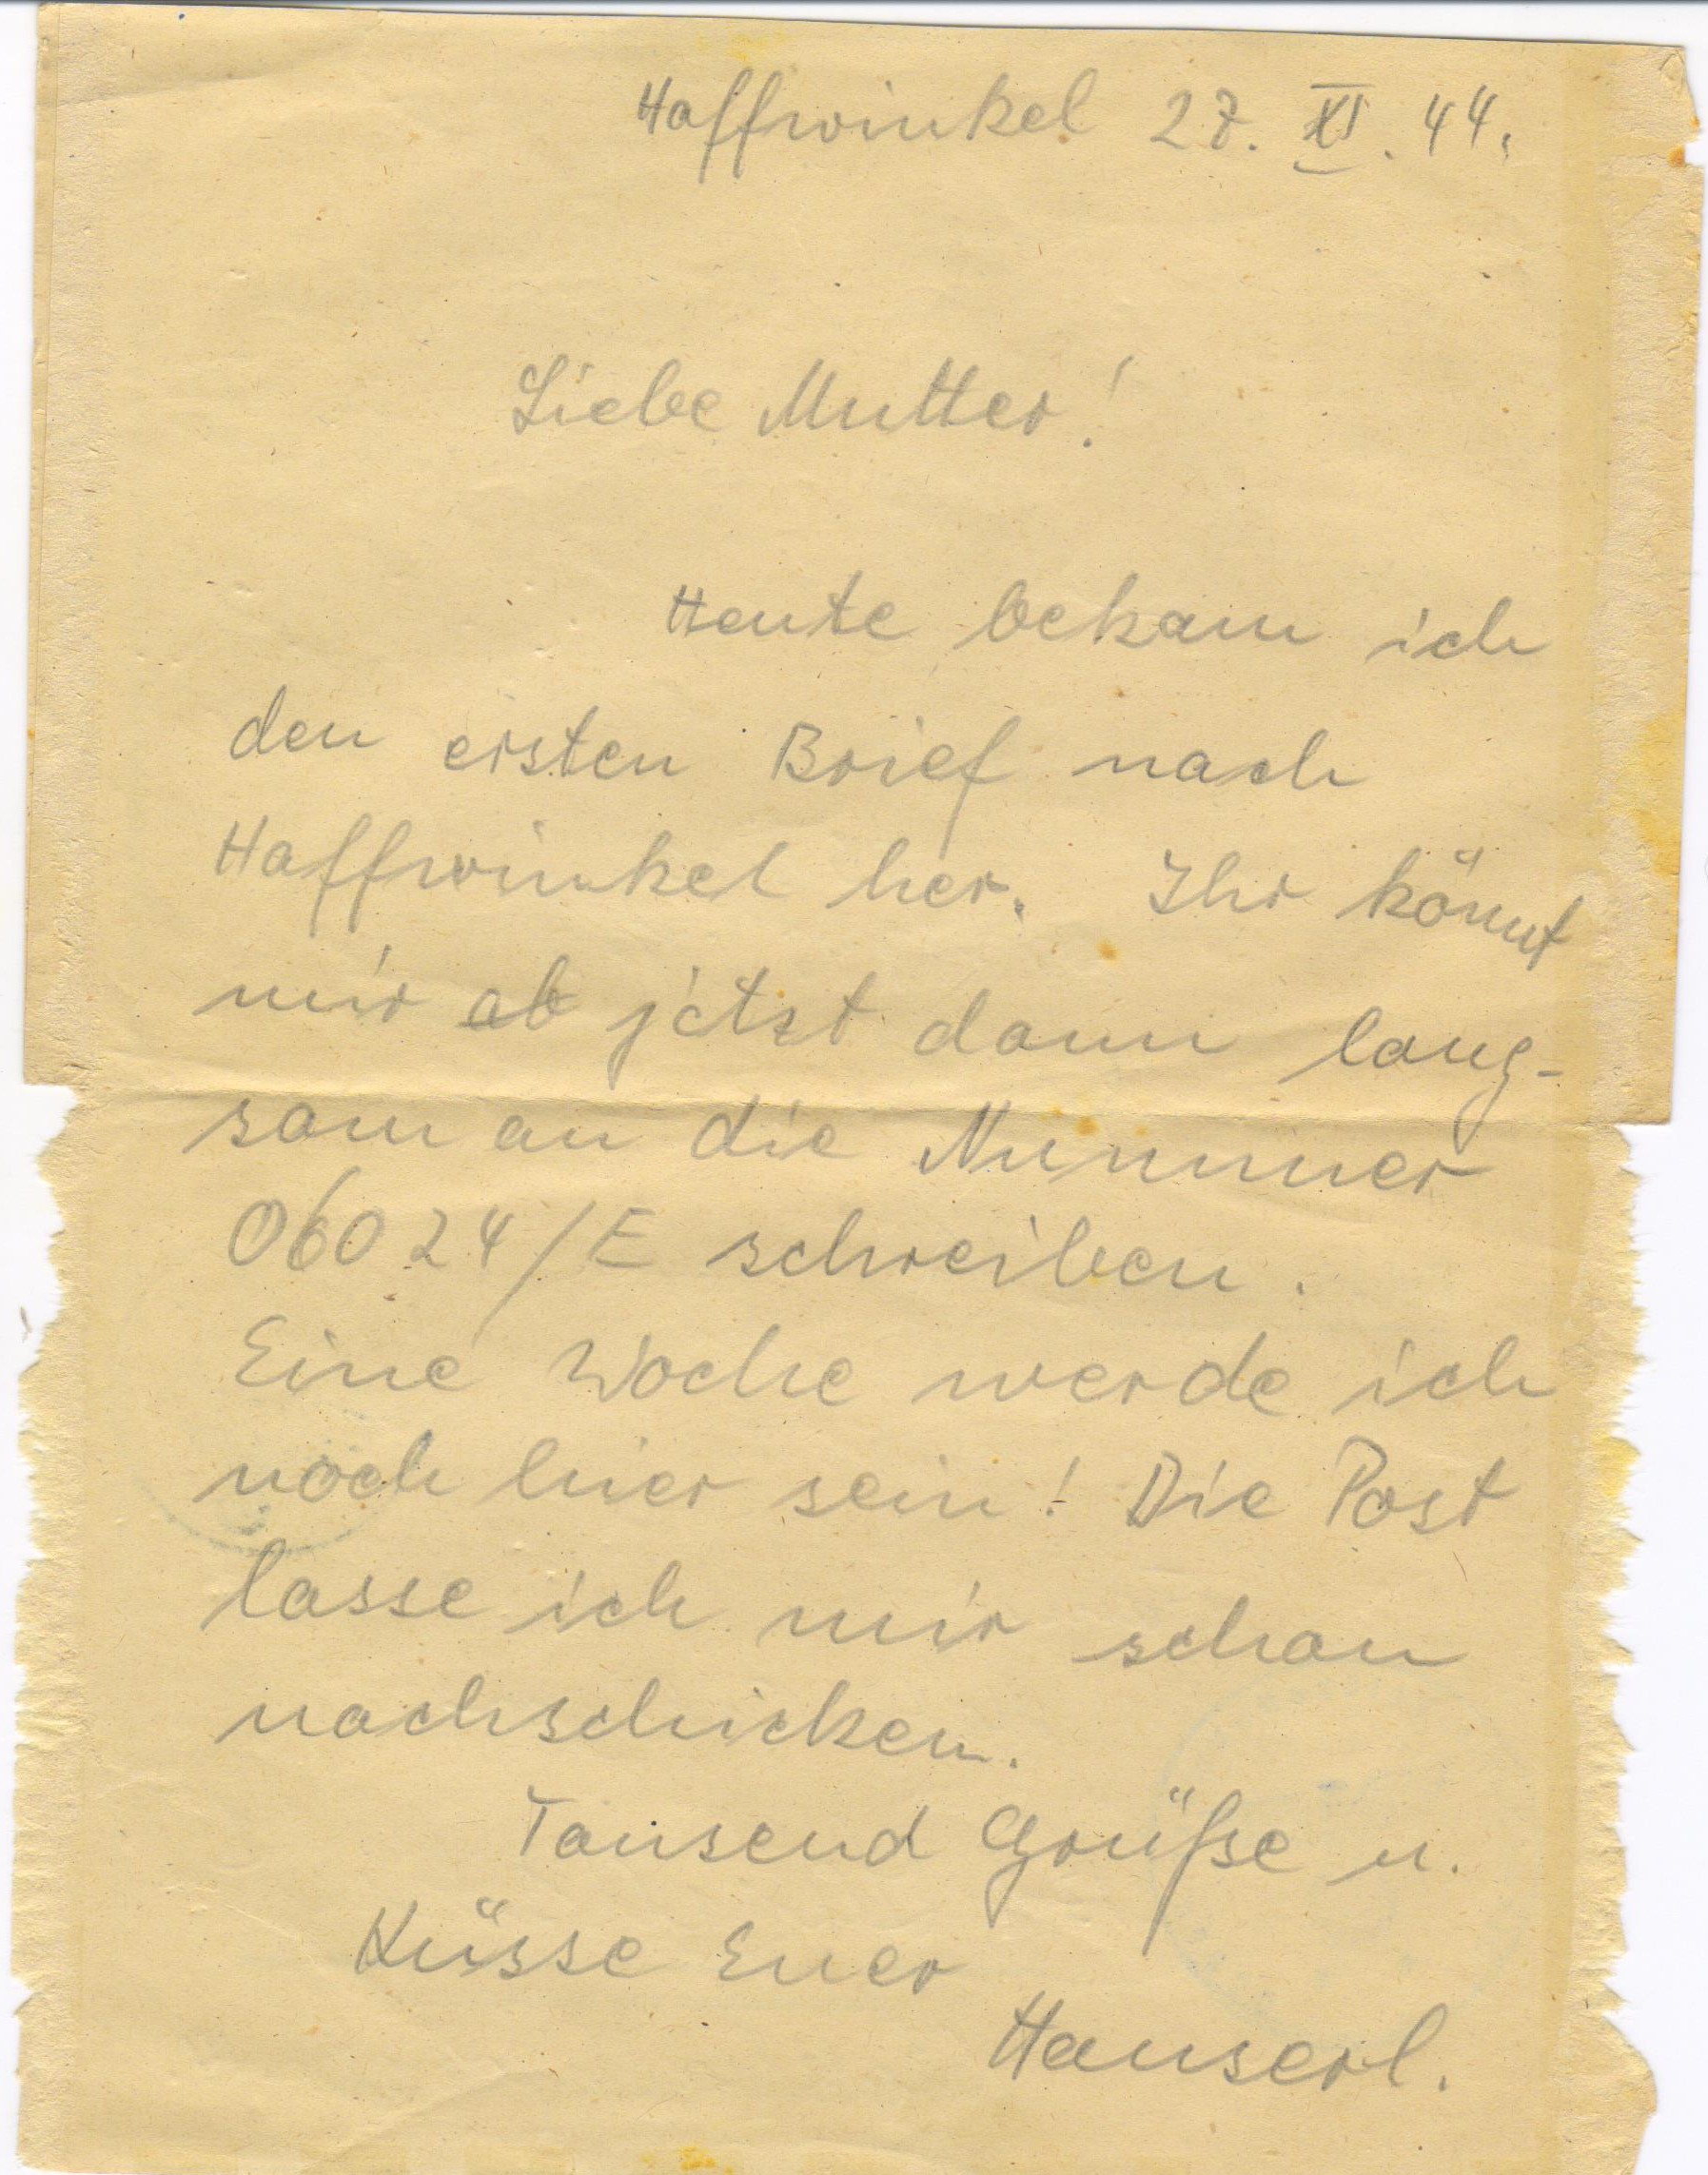 Haffwinkel 27. XI. 44.
Liebe Mutter!
Heute bekam ich
den ersten Brief nach
Haffwinkel her. Ihr könnt
mir ab jetzt dann lang-
sam an die Nummer
06024/E schreiben.
Eine Woche werde ich
noch hier sein! Die Post
lasse ich mir schon
nachschicken.
Tausend Grüße u.
Küsse Euer
Hanserl.